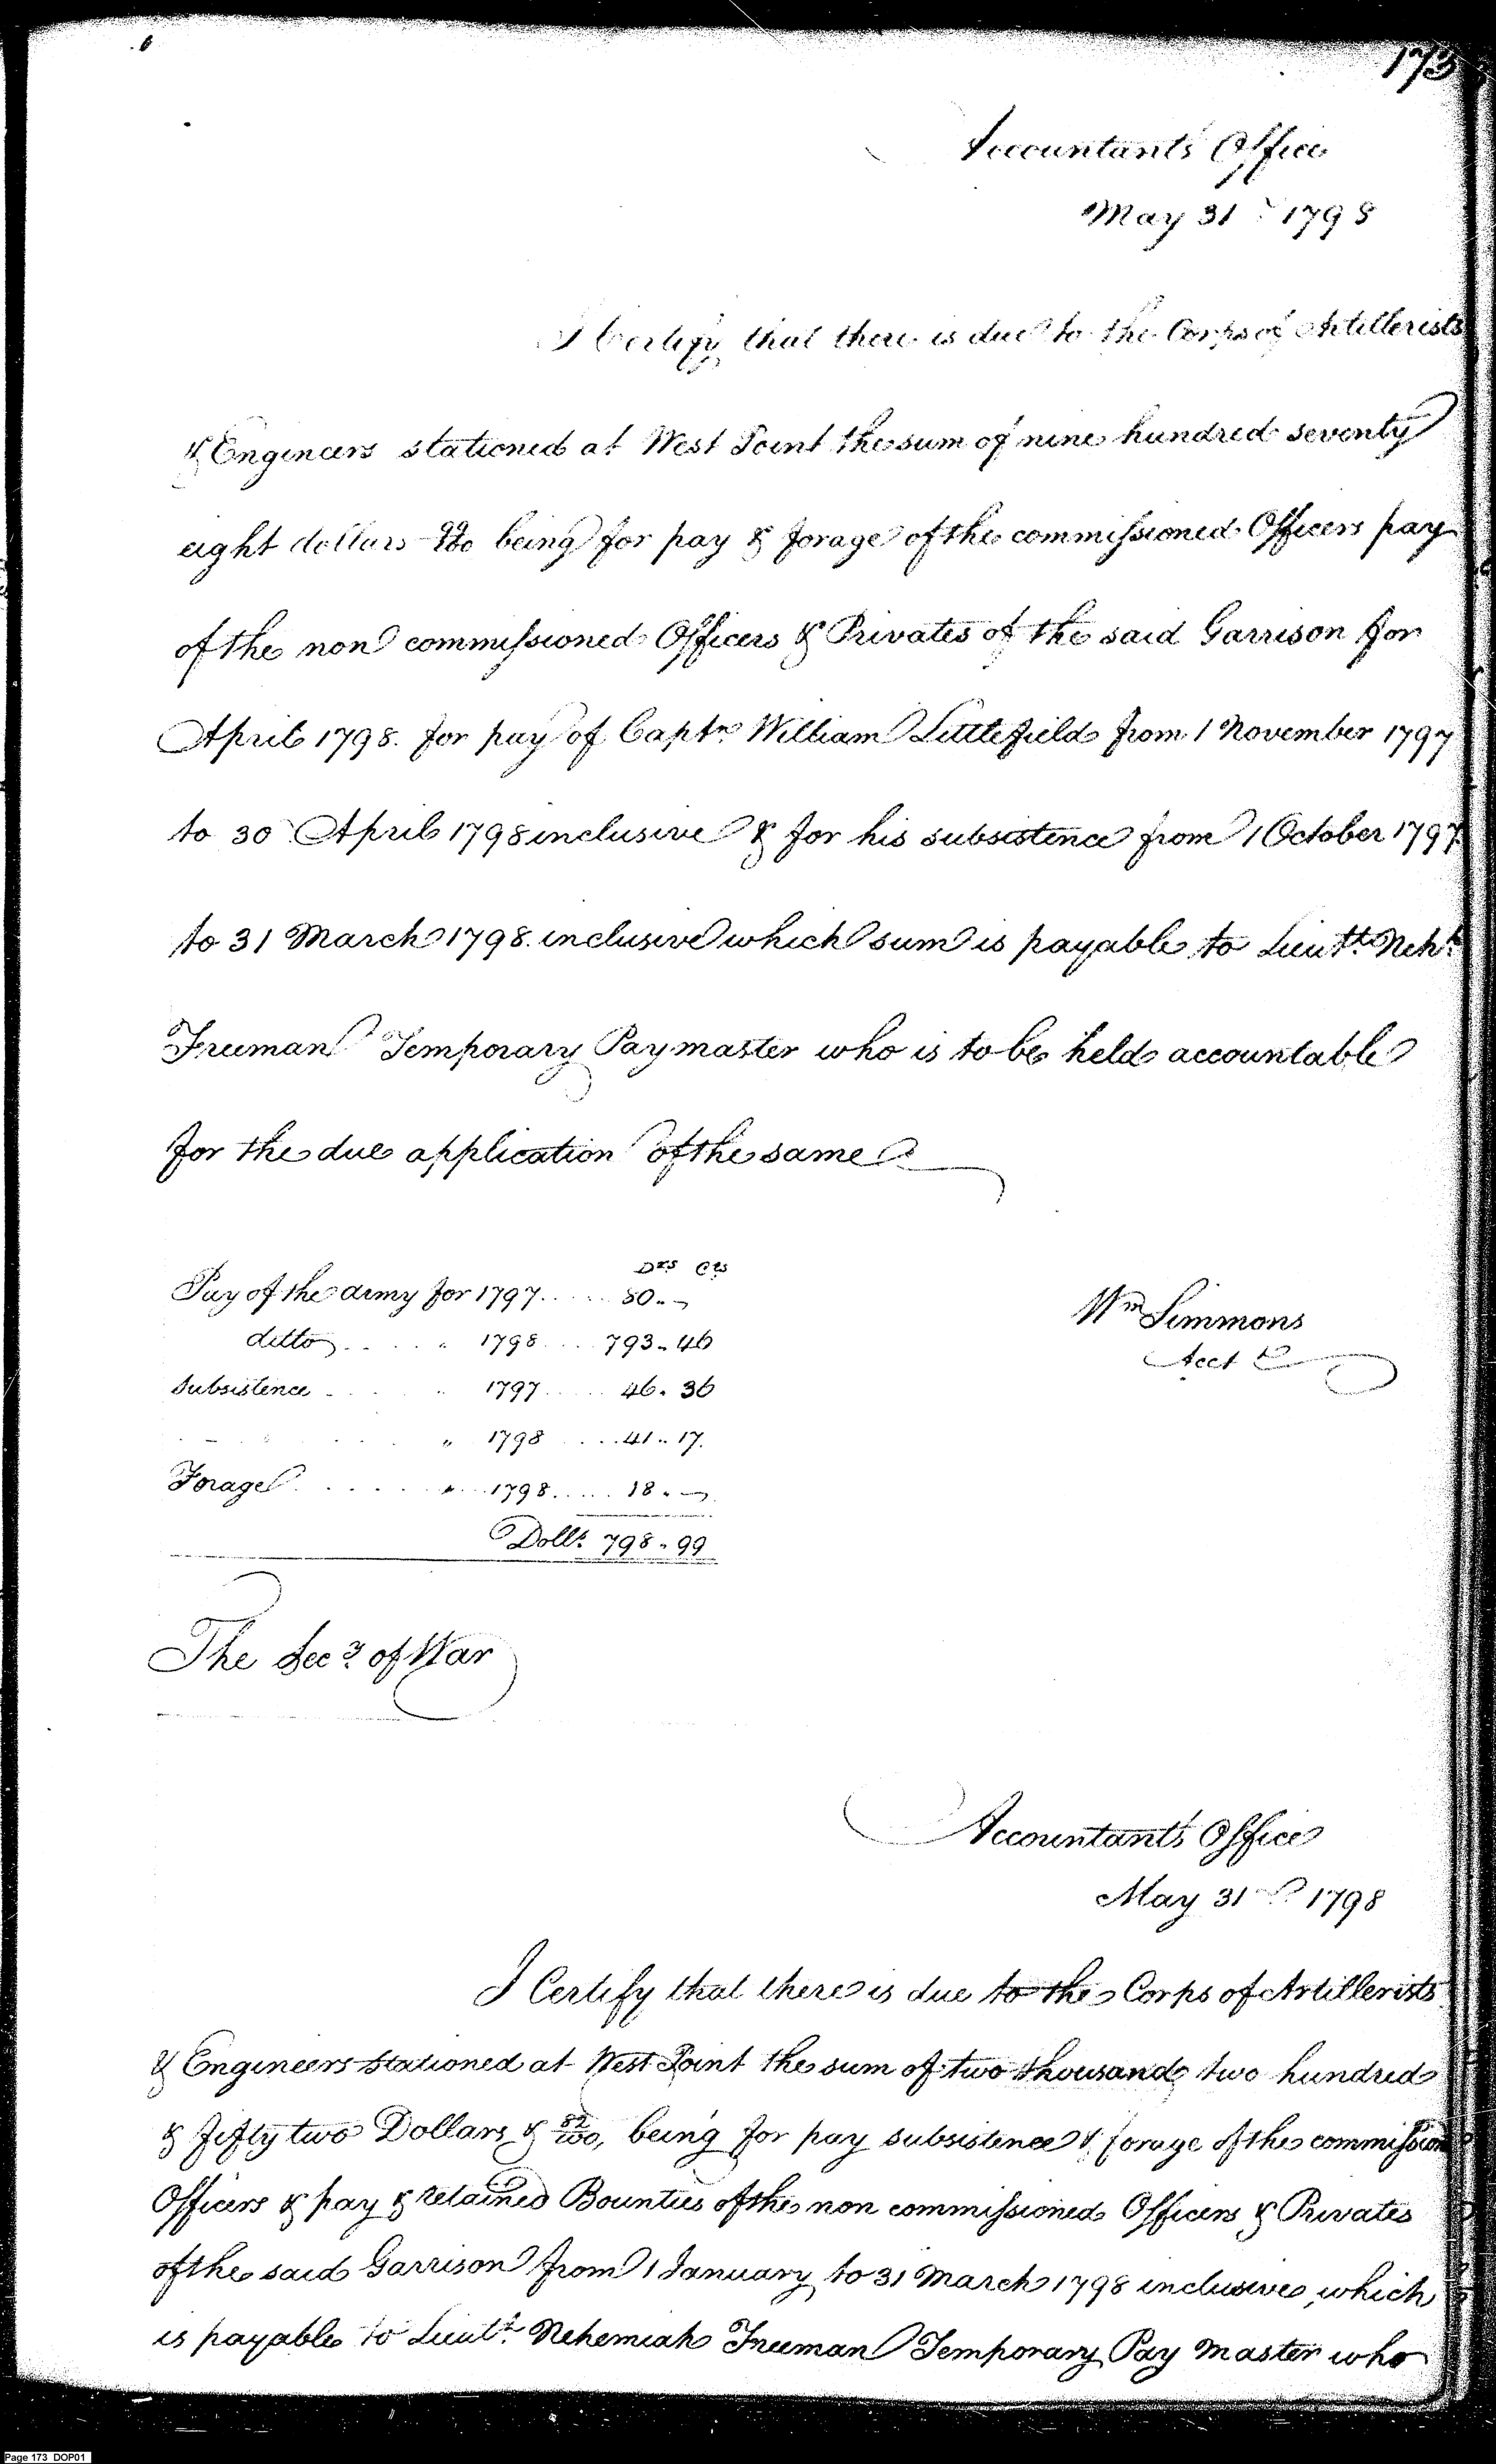 173
Accountants Office
May 31st 1798
I Certify that there is due to the Corps of Artillerists
& Engineers stationed at West Point the sum of nine hundred seventy
eight dollars 99/100 being for pay & forage of the commissioned Officers pay
of the non commissioned Officers & Privates of the said Garrison for
April 1798. for pay of Captn. William Littlefield from 1 November 1797
to 30 April 1798 inclusive & for his subsistence from 1 October 1797
to 31 March 1798. inclusive which sum is payable to Lieutt. Neh.h
Freeman Temporary Paymaster who is to be held accountable
for the due application of the same
Drs Cts
Pay of the army for 1797 ..... 80..
ditto .... " 1798 .... 793.. 46
Subsistence .... " 1797 ..... 46. 36
" 1798 .... 41.. 17.
Forage ...... " 1798 ..... 18..
Dolls. 798.. 99
Wm Simmons
Acct
The Secy. of War
Accountant's Office
May 31st 1798
I Certify that there is due to the Corps of Artillerists
& Engineers stationed at West Point the sum of two thousand two hundred
& fifty two Dollars & 82/100, being for pay subsistence & forage of the commission
Officers & pay & retained Bounties of the non commissioned Officers & Privates
of the said Garrison from 1 January to 31 March 1798 inclusive, which
is payable to Lieutt. Nehemiah Freeman Temporary Pay Master who
Page 173 DOP01